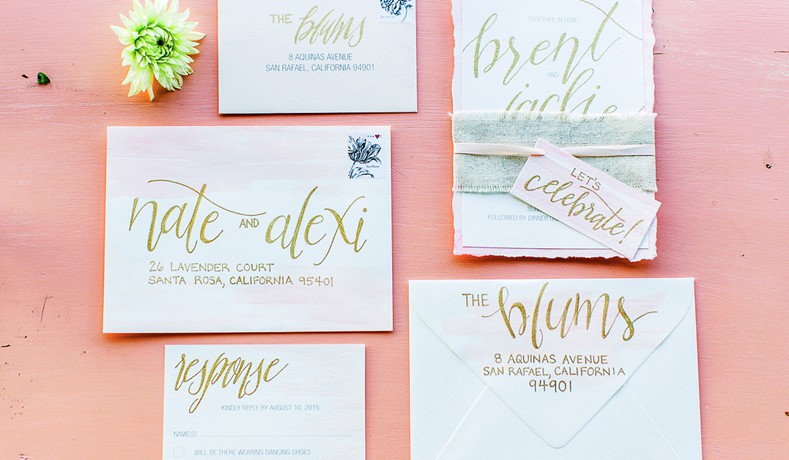 THE blums
8 AQUINAS AVENUE
SAN RAFAEL, CALIFORNIA 94901
TOGETHER IN LOVE
brent
AND
jackie
LET'S
celebrate!
FOLLOWED BY DINNER
nate AND alexi
26 LAVENDER COURT
SANTA ROSA, CALIFORNIA 95401
THE blums
8 AQUINAS AVENUE
SAN RAFAEL, CALIFORNIA
94901
response
KINDLY REPLY BY AUGUST 10, 2015
NAME(S)
WILL BE THERE WEARING DANCING SHOES